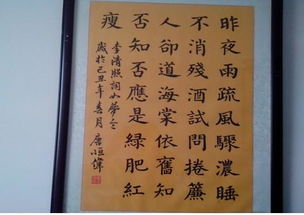 昨夜雨疏風驟濃睡
不消殘酒試問捲簾
人卻道海棠依舊知
否知否應是綠肥紅
瘦
李清照詞如夢令
歲於己丑年春月 唐恒偉